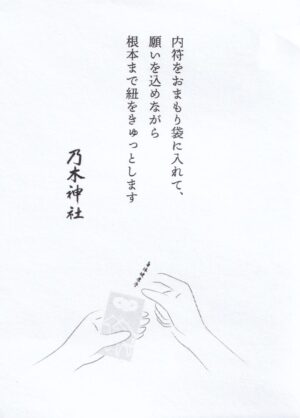 内符をおまもり袋に入れて、
願いを込めながら
根本まで紐をきゅっとします
乃木神社